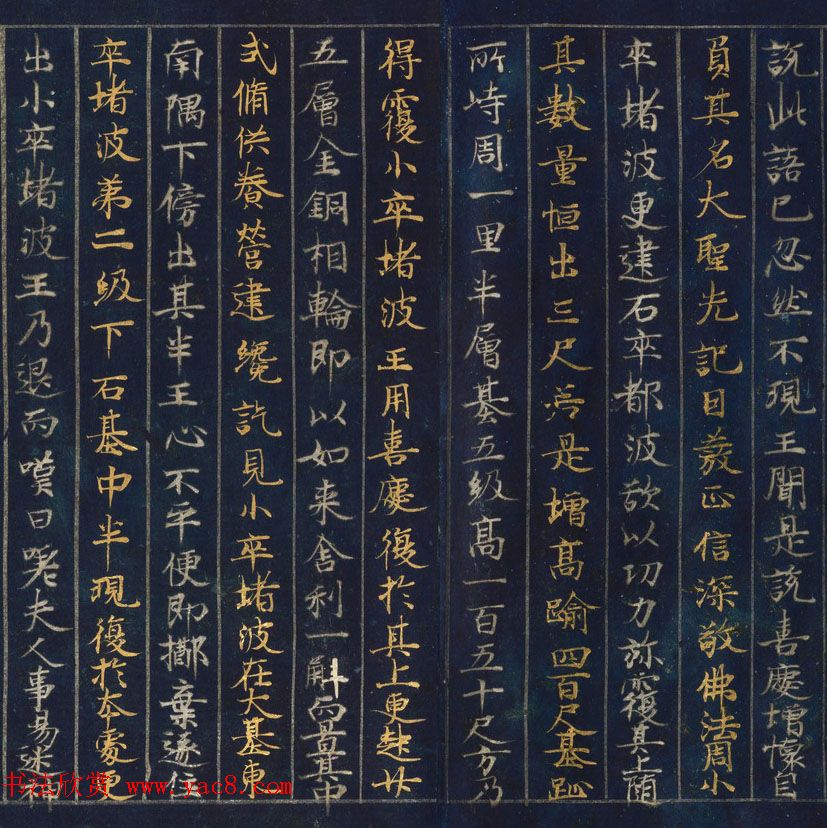 說此語已忽然不現王聞是說喜慶增懷自
負其名大聖先記因發正信深敬佛法周小
卒堵波更建石卒都波欲以功力弥覆其上随
其數量恒出三尺若是增高踰四百尺基趾
所峙周一里半層基五級高一百五十尺方乃
得覆小卒堵波王用喜慶復於其上更起廿
五層金銅相輪即以如来舍利一斛而置其中
式脩供養營建纔訖見小卒堵波在大基東
南隅下傍出其半王心不平便即擲棄遂住
卒堵波第二級下石基中半現復於本處更
出小卒堵波王乃退而嘆曰嗟夫人事易迷神
书法欣赏 www.yac8.com